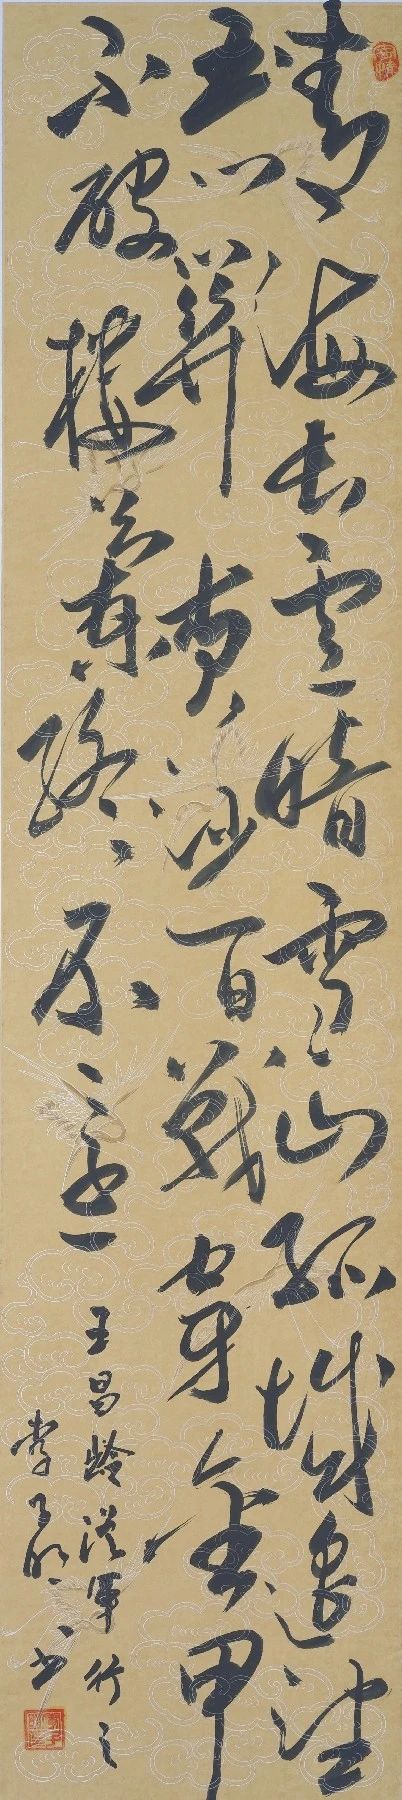 青海長雲暗雪山孤城遥望
玉门關黄沙百戰穿金甲
不破樓蘭終不還
王昌齡從軍行之
李 书